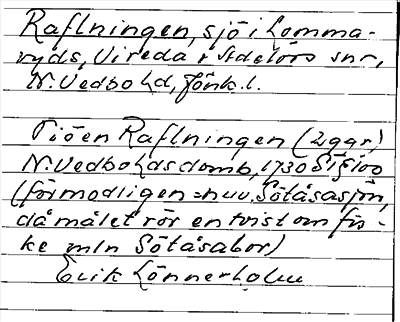 Raflningen, sjö i Lomma-
ryds, Vireda & Adelövs snr,
N. Vedbo hd, Jönk. l.
Siöen Raflningen (2 ggr)
N. Vedbo hds domb, 1730
(förmodligen = nuv. Sötåsasjön,
då målet rör en tvist om fis-
ke mln Sötåsabor)
Erik Lönnerholm